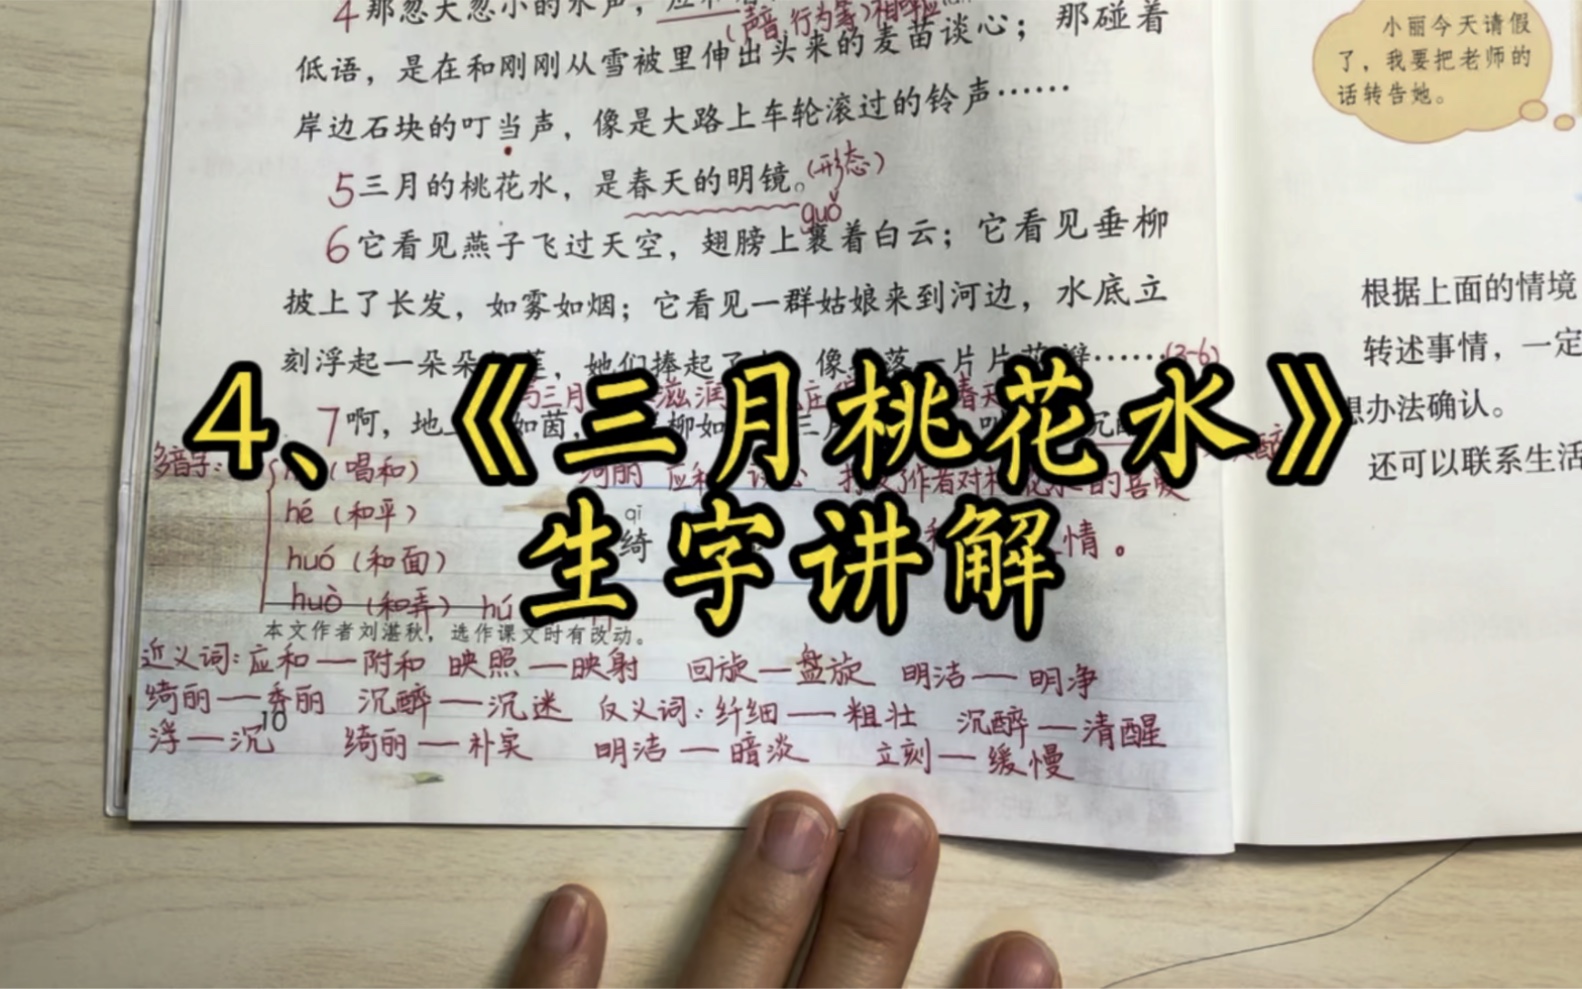 4那忽大忽小的水声，
(声音、行为等)相呼应
低语，是在和刚刚从雪被里伸出头来的麦苗谈心；那碰着
岸边石块的叮当声，像是大路上车轮滚过的铃声……
5三月的桃花水，是春天的明镜。(形态)
guǒ
6它看见燕子飞过天空，翅膀上裹着白云；它看见垂柳
披上了长发，如雾如烟；它看见一群姑娘来到河边，水底立
刻浮起一朵朵 她们捧起了 像 落一片片花瓣……(3-6)
与三月 滋润 春天
7啊，地 如茵， 柳如
多音字：
(唱和)
绮丽 应和 谈心 抒发了作者对桃花水的喜爱
hé(和平)
huó(和面)
qǐ
绮
情。
huò(和弄) hú
本文作者刘湛秋，选作课文时有改动。
近义词：应和—附和 映照—映射 回旋—盘旋 明洁—明净
绮丽—秀丽 沉醉—沉迷 反义词：纤细—粗壮 沉醉—清醒
10
浮—沉 绮丽—朴实 明洁—暗淡 立刻—缓慢
4、《三月桃花水》
生字讲解
小丽今天请假
了，我要把老师的
话转告她。
根据上面的情境
转述事情，一定
想办法确认。
还可以联系生活